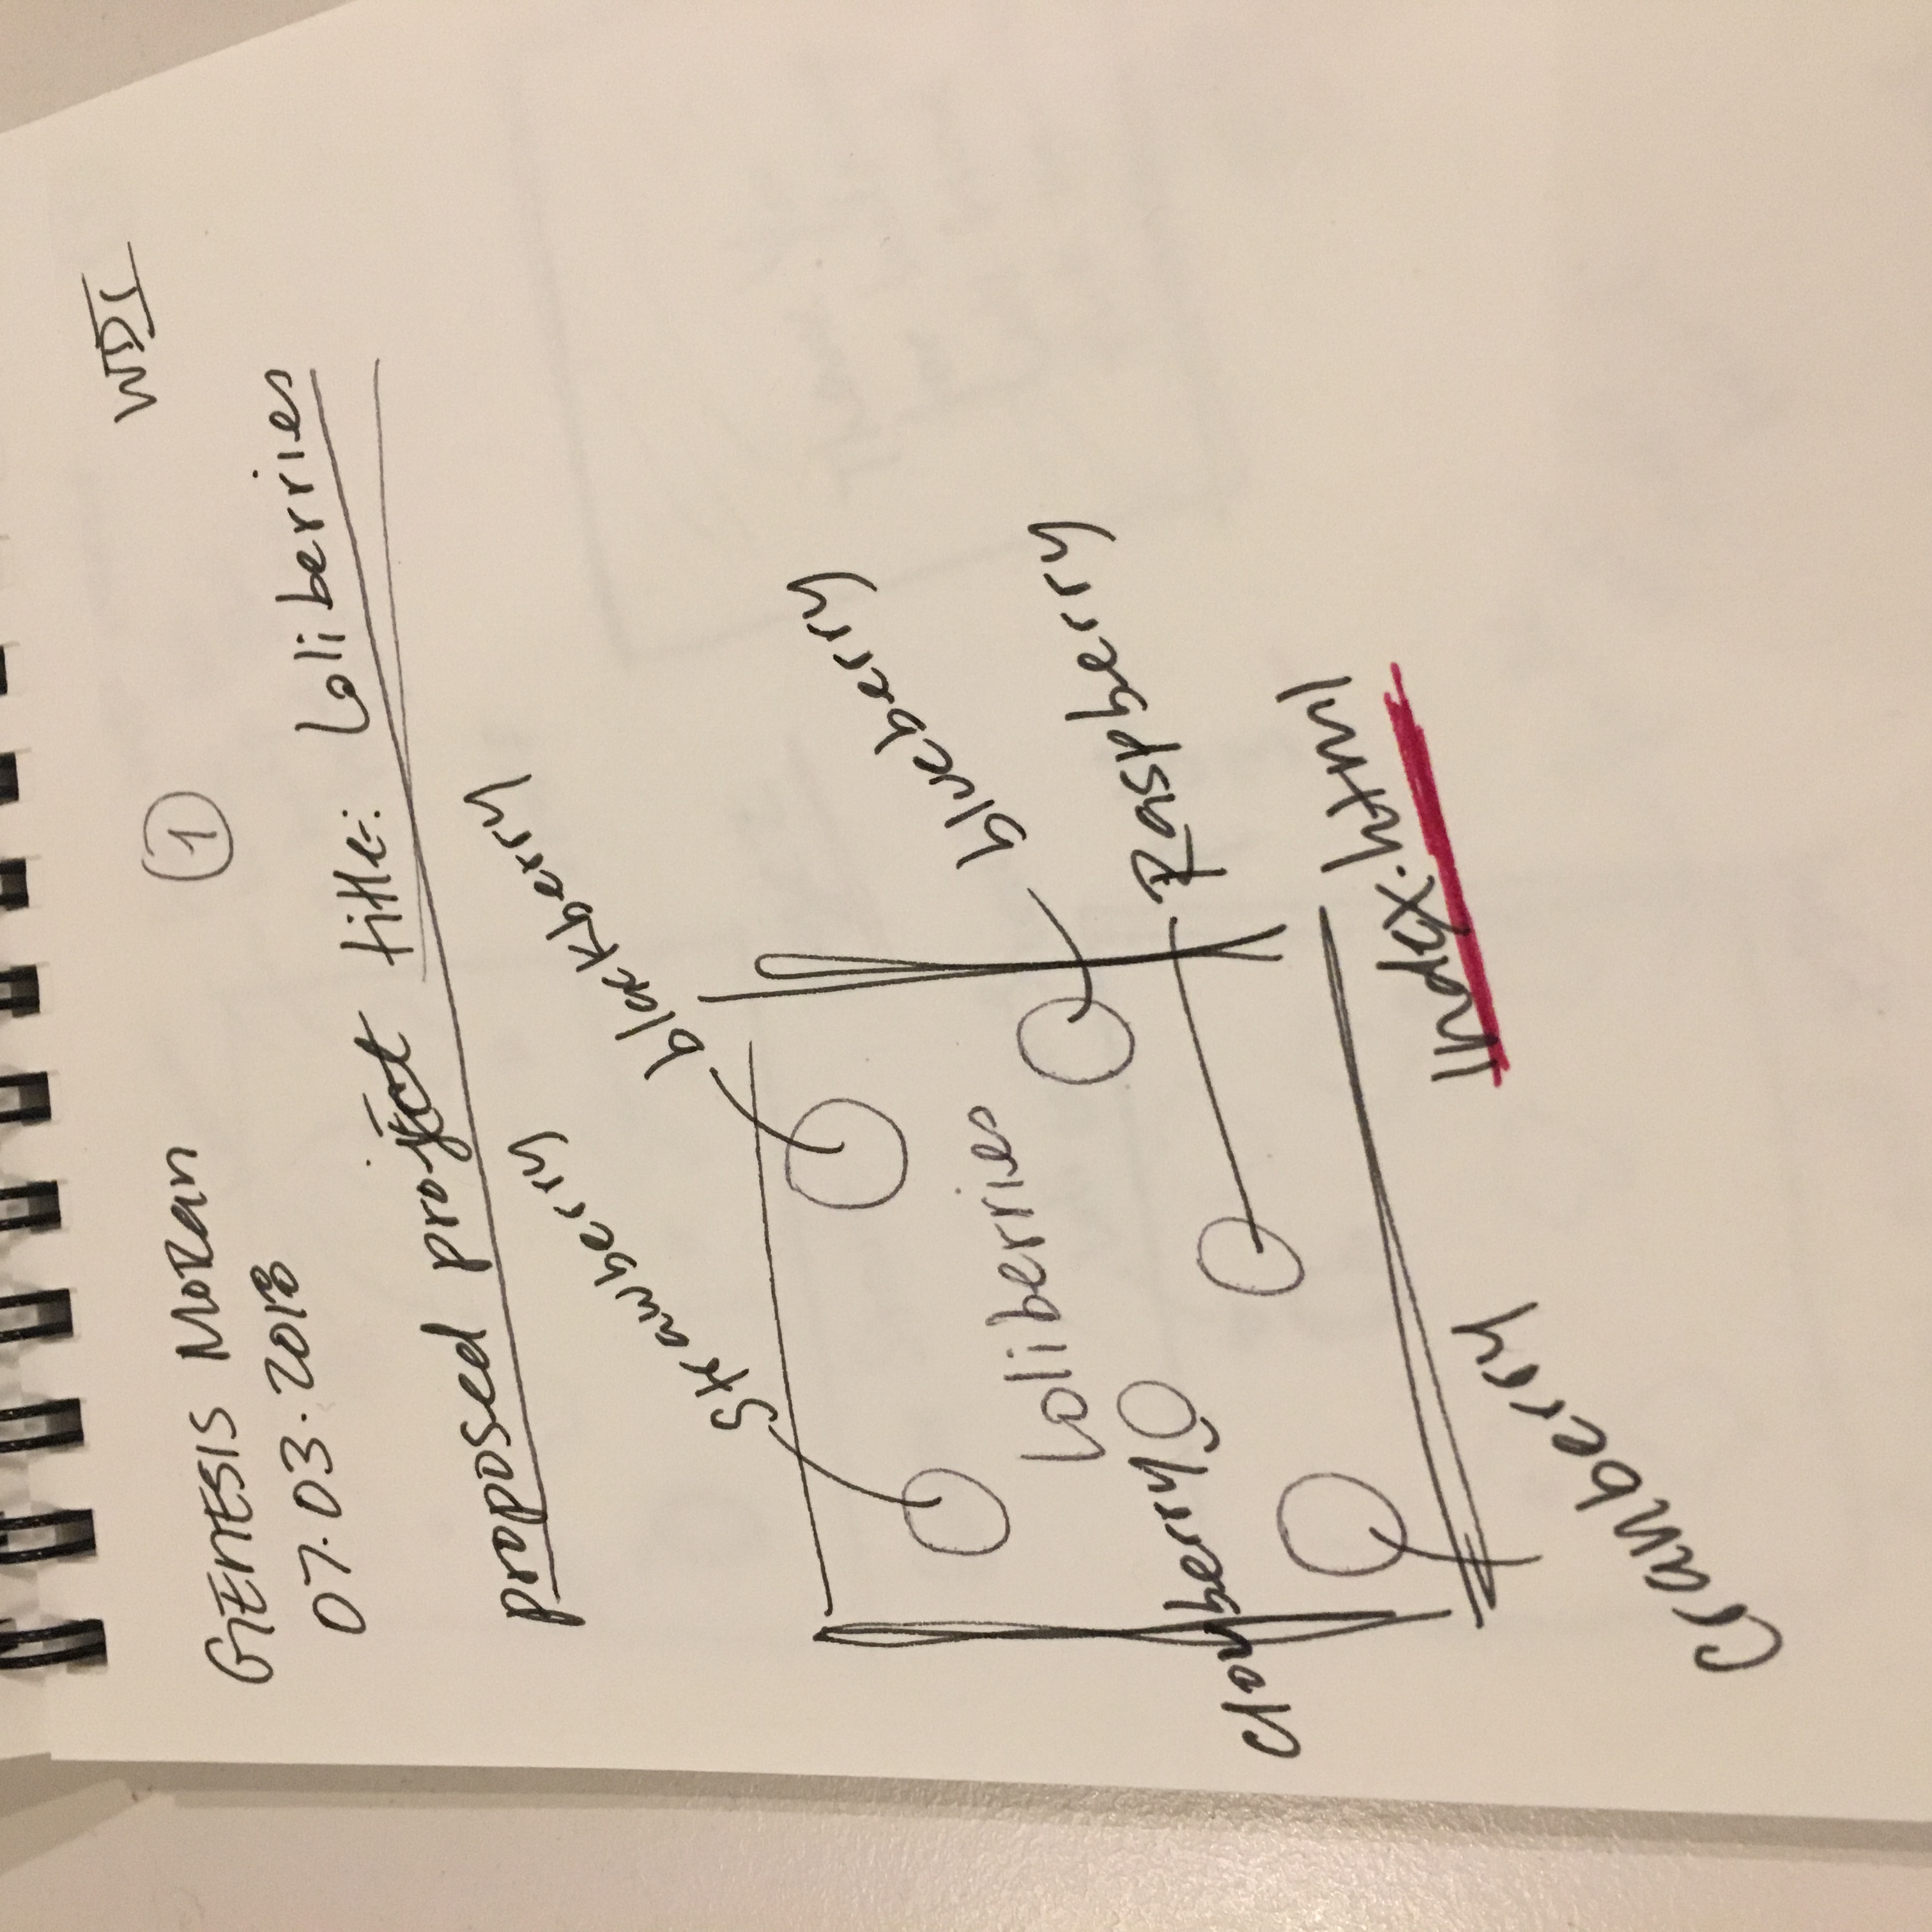 GENESIS MoRan
1
WDI
07.03.2018
proposed project title: Loliberries
Strawberry
blackberry
Loliberries
blueberry
Raspberry
Index.html
Cranberry